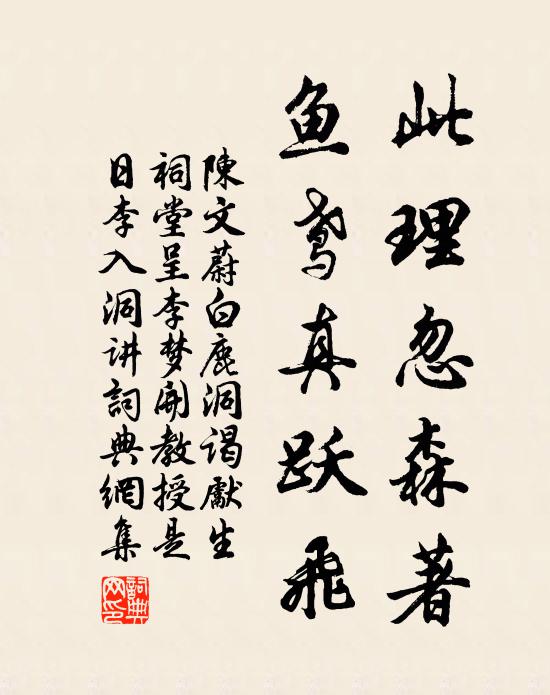 此理忽森著
鱼鸢真跃飛
陳文蔚白鹿洞谒獻生
祠堂呈李梦開教授是
日李入洞讲詞典網集
詞典网印